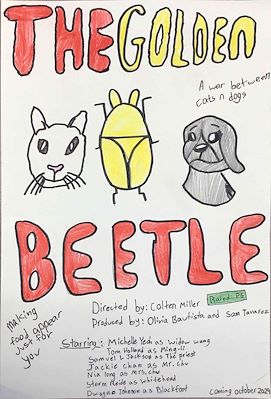 THE GOLDEN
A war between
cats n dogs
BEETLE
making
food appear
just for
you
Directed by: Colten Miller
Rated: PG
Produced by: Olivia Bautista and Sam Tavarez
Starring: Michelle Yeoh as Widow Wang
Tom Holland as Ming-li
Samuel L Jackson as The priest
Jackie Chan as Mr. Chu
Nia long as Mrs. Chu
Storm Reide as Whitehead
Dwayne Johnson as Blackfoot
Coming october 2024